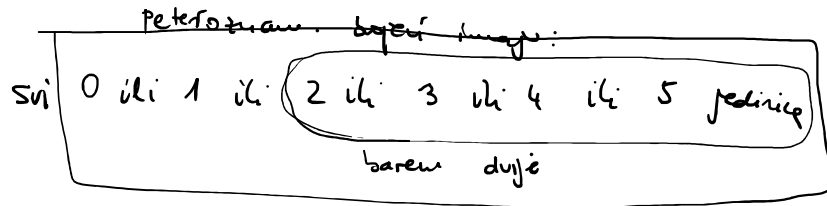 peteroznam. brojevi imaju:
Svi 0 ili 1 ili 2 ili 3 ili 4 ili 5 jedinica
barem dvije